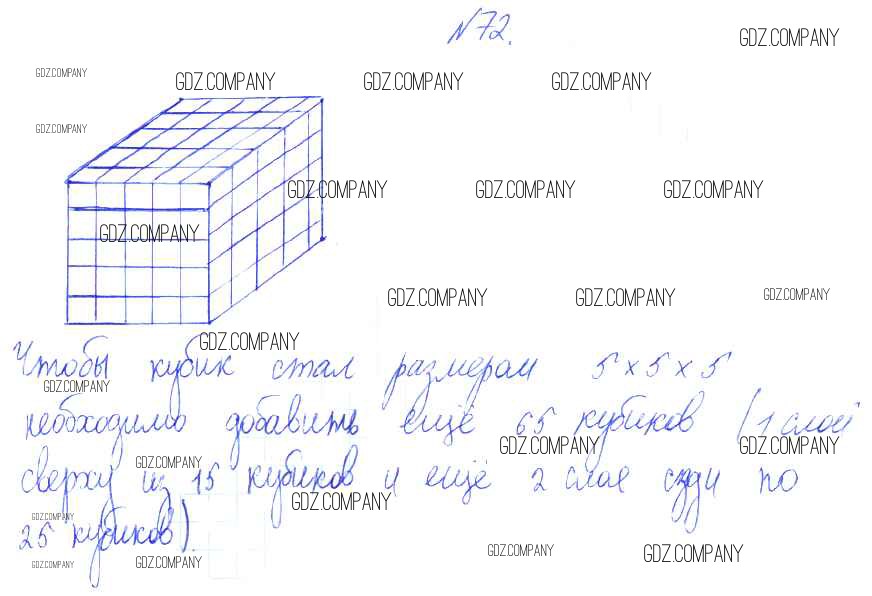 №72.
GDZ.COMPANY
GDZ.COMPANY
GDZ.COMPANY GDZ.COMPANY GDZ.COMPANY
GDZ.COMPANY
GDZ.COMPANY GDZ.COMPANY GDZ.COMPANY
GDZ.COMPANY
GDZ.COMPANY GDZ.COMPANY GDZ.COMPANY
GDZ.COMPANY
Чтобы кубик стал размером 5 × 5 × 5
GDZ.COMPANY
необходимо добавить ещё 65 кубиков (1 слой
GDZ.COMPANY GDZ.COMPANY
GDZ.COMPANY
сверху из 15 кубиков и ещё 2 слоя сзди по
GDZ.COMPANY
GDZ.COMPANY
25 кубиков)
GDZ.COMPANY GDZ.COMPANY
GDZ.COMPANY GDZ.COMPANY